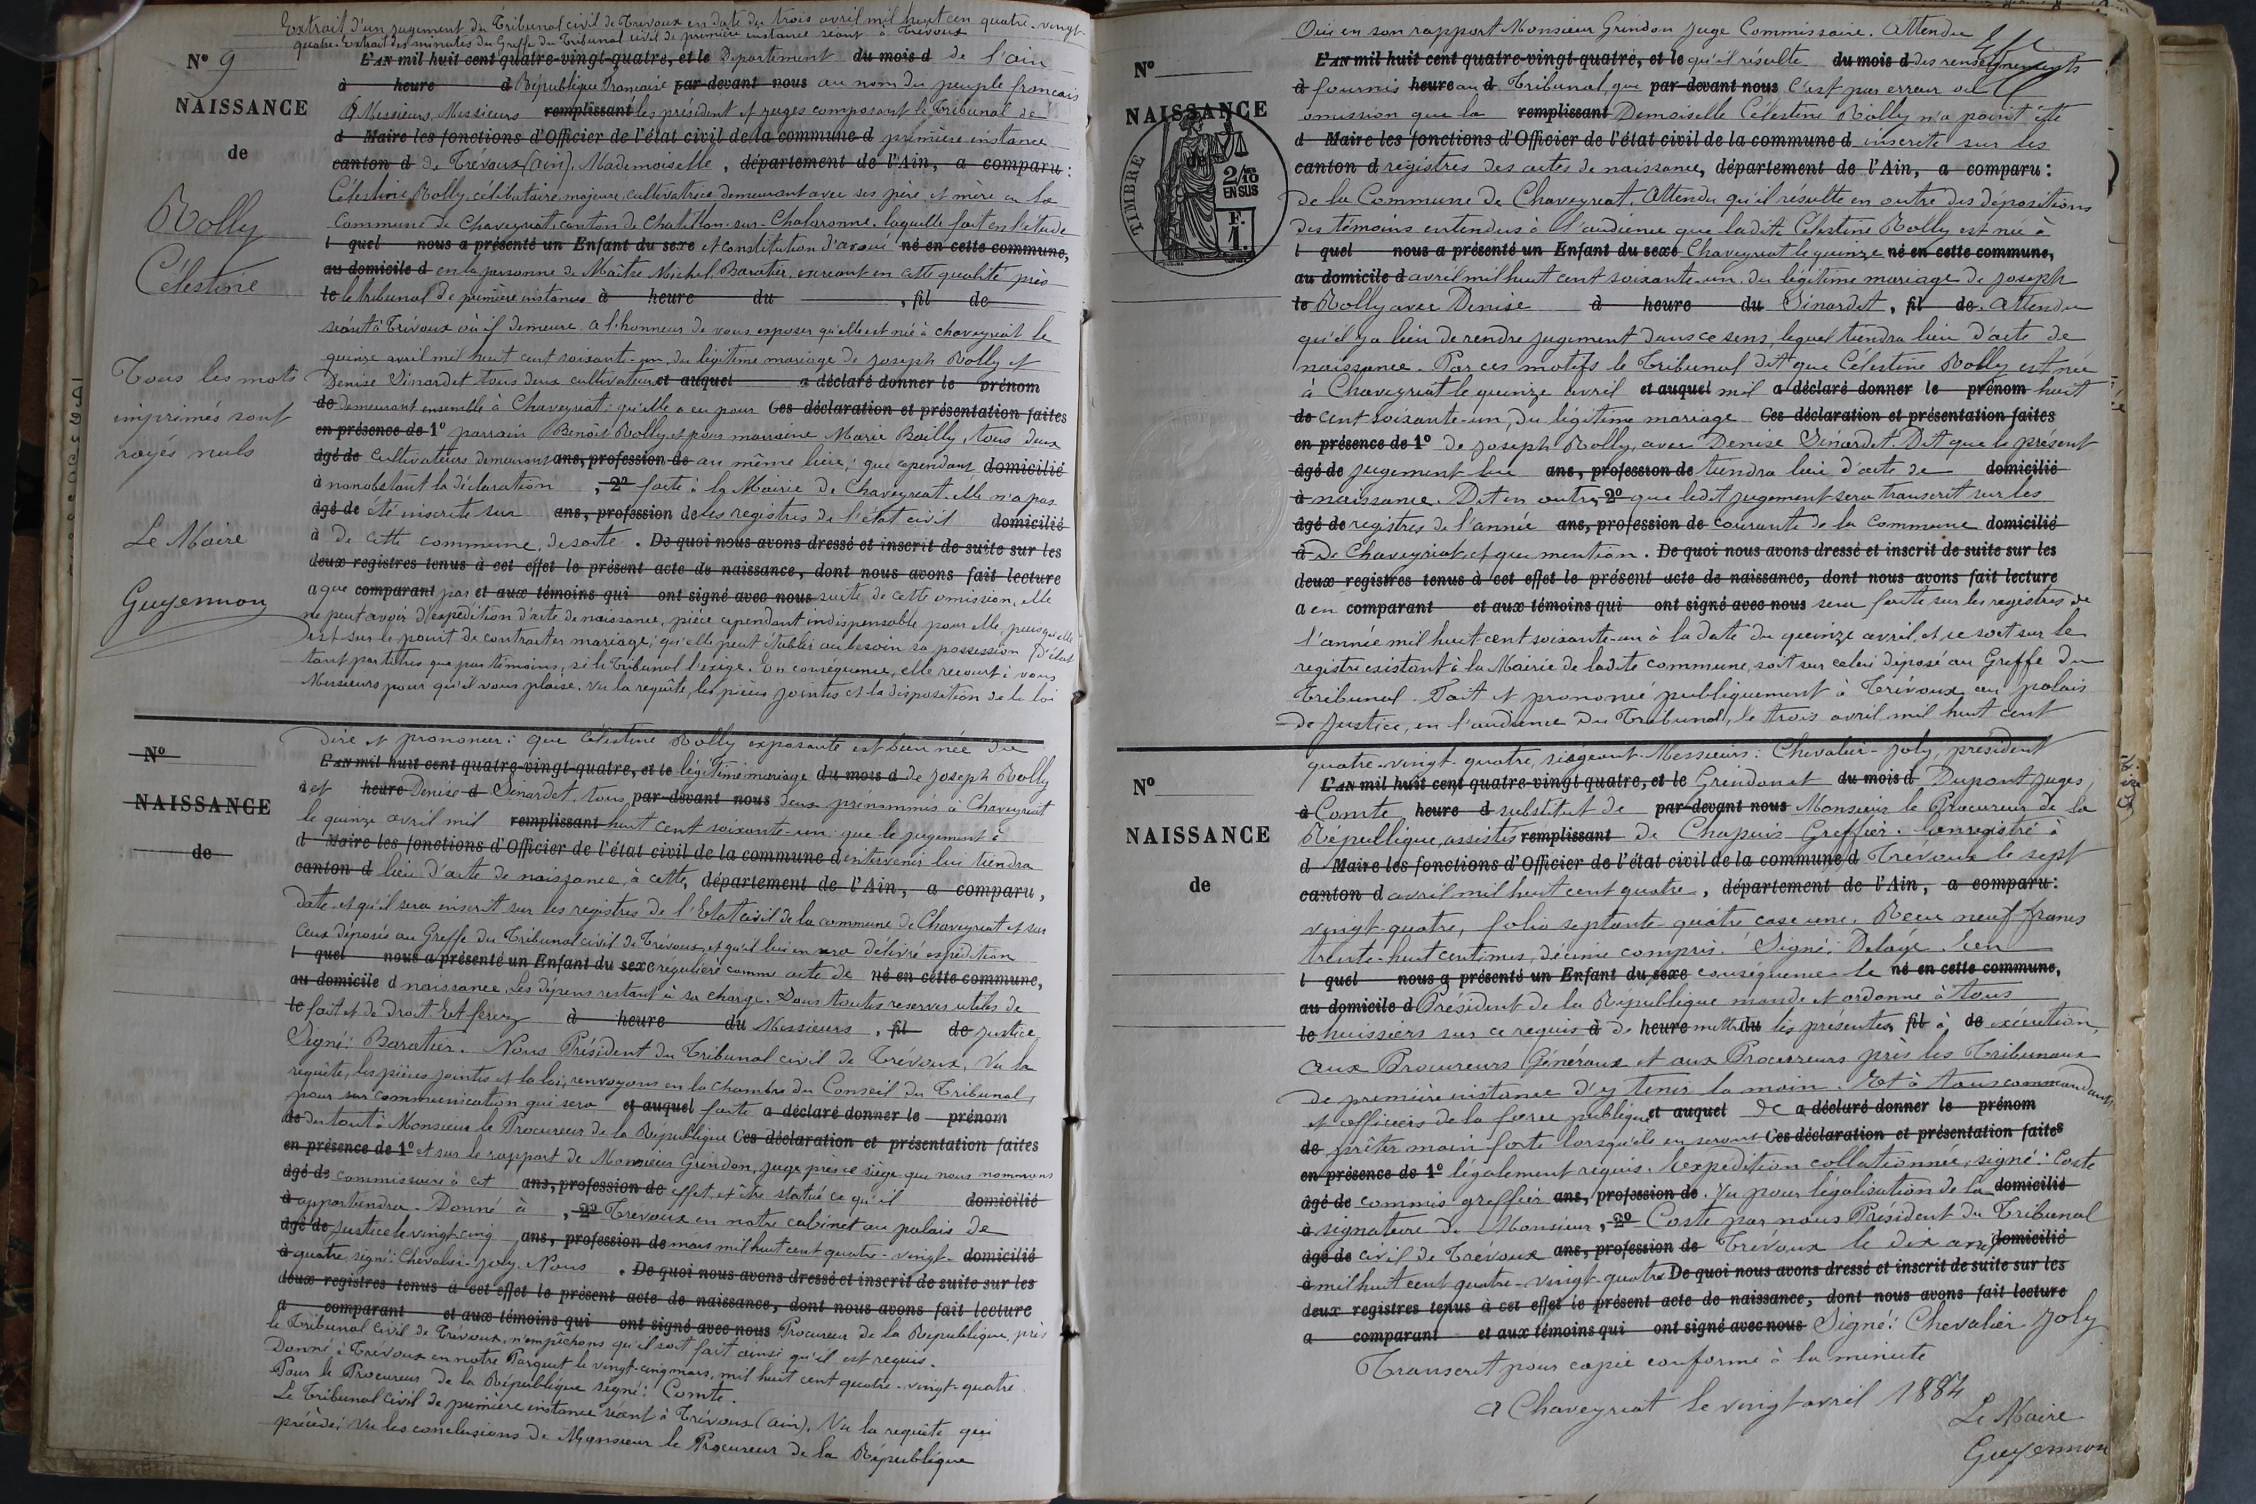 Extrait d'un jugement du Tribunal civil de Trévoux en date du trois avril mil huit cent quatre-vingt-
quatre. Extrait des minutes du Greffe du Tribunal civil de première instance séant à Trévoux
N° 9
L'AN mil huit cent quatre-vingt-quatre, et le Département du mois d de l'ain
à heure d République Française par-devant nous au nom du peuple francais
NAISSANCE
A Messieurs, Messieurs remplissant les président et juges composant le Tribunal de
d Maire les fonctions d'Officier de l'état civil de la commune d première instance
de
canton d de Trévoux (ain). Mademoiselle, département de l'Ain, a comparu :
Célestine Rolly, célibataire, majeure, cultivatrice demeurant avec ses père et mère en la
Rolly
Commune de Chaveyriat, canton de Chatillon-sur-Chalaronne, laquelle fait en l'étude
l quel nous a présenté un Enfant du sexe et constitution d'avoué né en cette commune,
Célestine
au domicile d en la personne de Maître Michel Baratier, exerçant en cette qualité près
le le tribunal de première instance à heure du , fil de
séant à Trévoux où il demeure. a l'honneur de vous exposer qu'elle est née à chaveyriat le
quinze avril mil huit cent soixante-un, du légitime mariage de Joseph Rolly et
Tous les mots
Denise Sinardet tous deux cultivateurs et auquel a déclaré donner le prénom
imprimés sont
de demeurant ensemble à Chaveyriat; qu'elle a eu pour Ces déclaration et présentation faites
en présence de 1° parrain Benoît Rolly et pour marraine Marie Bailly, tous deux
rayés nuls
âgé de cultivateurs demeurant ans, profession de au même lieu; que cependant domicilié
à nonobstant la déclaration , 2° faite à la Mairie de Chaveyriat. elle n'a pas
âgé de été inscrite sur ans, profession de les registres de l'état civil domicilié
Le Maire
à de cette commune, de sorte . De quoi nous avons dressé et inscrit de suite sur les
deux registres tenus à cet effet le présent acte de naissance, dont nous avons fait lecture
Guyennon
a que comparant par et aux témoins qui ont signé avec nous suite de cette omission, elle
ne peut avoir d'expédition d'acte de naissance, pièce cependant indispensable pour elle, puisqu'elle
est sur le point de contracter mariage; qu'elle peut établir au besoin sa possession d'état
tant par titres que par témoins, si le Tribunal l'exige. En conséquence, elle recourt à vous
Messieurs pour qu'il vous plaise. Vu la requête, les pièces jointes et la disposition de la loi
dire et prononcer: que Célestine Rolly exposante est bien née du
N°
L'AN mil huit cent quatre-vingt-quatre, et le légitime mariage du mois d de Joseph Rolly
à et heure Denise d Sinardet, tous par-devant nous deux prénommés à Chaveyriat
NAISSANCE
le quinze avril mil remplissant huit cent soixante-un: que le jugement à
d Maire les fonctions d'Officier de l'état civil de la commune d intervenir lui tiendra
de
canton d lieu d'acte de naissance, à cette, département de l'Ain, a comparu,
date et qu'il sera inscrit sur les registres de l'Etat civil de la commune de Chaveyriat et sur
ceux déposés au Greffe du Tribunal civil de Trévoux, et qu'il lui en sera délivré expédition
l quel nous a présenté un Enfant du sexe régulière comme acte de né en cette commune,
au domicile d naissance, les dépens restant à sa charge. Sous toutes reserves utiles de
le fait et de droit Et ferez à heure du Messieurs, fil de justice
Signé: Baratier. Nous Président du Tribunal civil de Trévoux, Vu la
requête, les pièces jointes et la loi, renvoyons en la chambre du Conseil du Tribunal,
pour sur communication qui sera et auquel faite a déclaré donner le prénom
de du tout à Monsieur le Procureur de la République Ces déclaration et présentation faites
en présence de 1° et sur le rapport de Monsieur Grindon, juge près ce siège que nous nommons
âgé de commissaire à cet ans, profession de effet, et être statué ce qu'il domicilié
à appartiendra. Donné à , 2° Trevoux en notre cabinet au palais de
âgé de justice le vingt-cinq ans, profession de mars mil huit cent quatre-vingt- domicilié
à quatre signé: Chevalier-Joly. Nous . De quoi nous avons dressé et inscrit de suite sur les
deux registres tenus à cet effet le présent acte de naissance, dont nous avons fait lecture
a comparant et aux témoins qui ont signé avec nous Procureur de la République, près
le Tribunal civil de Trévoux, n'empêchons qu'il soit fait ainsi qu'il est requis.
Donné à Trévoux en notre Parquet le vingt-cinq mars, mil huit cent quatre-vingt-quatre
Pour le Procureur de la République signé: Comte.
Le Tribunal civil de première instance séant à Trévoux (ain), Vu la requête qui
précède; Vu les conclusions de Monsieur le Procureur de la République
Oui en son rapport Monsieur Grindon juge Commissaire. Attendu
N°
L'AN mil huit cent quatre-vingt-quatre, et le qu'il résulte du mois d des renseignements
à fournis heure au d Tribunal, que par-devant nous c'est par erreur ou
NAISSANCE
omission que la remplissant Demoiselle Célestine Rolly n'a point été
d Maire les fonctions d'Officier de l'état civil de la commune d inscrite sur les
de
TIMBRE
2/10 EN SUS
F. 1.
canton d registres des actes de naissance, département de l'Ain, a comparu :
de la Commune de Chaveyriat. Attendu qu'il résulte en outre des dépositions
des témoins entendus à l'audience que ladite Célestine Rolly est née à
l quel nous a présenté un Enfant du sexe Chaveyriat le quinze né en cette commune,
au domicile d avril mil huit cent soixante-un, du légitime mariage de Joseph
le Rolly avec Denise à heure du Sinardet, fil de. Attendu
qu'il y a lieu de rendre jugement dans ce sens, lequel tiendra lieu d'acte de
naissance. Par ces motifs le Tribunal dit que Célestine Rolly est née
à Chaveyriat le quinze avril et auquel mil a déclaré donner le prénom huit
de cent soixante-un, du légitime mariage Ces déclaration et présentation faites
en présence de 1° de Joseph Rolly, avec Denise Sinardet. Dit que le présent
âgé de jugement lui ans, profession de tiendra lieu d'acte de domicilié
à naissance. Dit en outre, 2° que ledit jugement sera transcrit sur les
âgé de registres de l'année ans, profession de courante de la Commune domicilié
à De Chaveyriat, et que mention . De quoi nous avons dressé et inscrit de suite sur les
deux registres tenus à cet effet le présent acte de naissance, dont nous avons fait lecture
a en comparant et aux témoins qui ont signé avec nous sera faite sur les registres de
l'année mil huit-cent soixante-un à la date du quinze avril, et ce soit sur le
registre existant à la Mairie de ladite commune, soit sur celui déposé au Greffe du
Tribunal. Fait et prononcé publiquement à Trévoux au palais
de Justice, en l'audience du Tribunal, le trois avril mil huit cent
quatre-vingt-quatre, siégeant Messieurs: Chevalier-Joly, président
N°
L'AN mil huit cent quatre-vingt-quatre, et le Grindon et du mois d Dupont juges,
à Comte heure d substitut de par-devant nous Monsieur le Procureur de la
NAISSANCE
République, assistés remplissant de Chapuis Greffier. Enregistré à
d Maire les fonctions d'Officier de l'état civil de la commune d Trévoux le sept
de
canton d avril mil huit cent quatre, département de l'Ain, a comparu :
vingt-quatre, folio septante-quatre case une. Recu neuf francs
trente-huit centimes, décime compris. Signé: Delage. En
l quel nous a présenté un Enfant du sexe conséquence le né en cette commune,
au domicile d Président de la République mande et ordonne à tous
le huissiers sur ce requis à de heure mettre du les présentes fil à de exécution,
aux Procureurs Généraux et aux Procureurs près les Tribunaux
de première instance d'y tenir la main. Et à tous commandants
et officiers de la force publique et auquel de a déclaré donner le prénom
de prêter main forte lorsqu'ils en seront Ces déclaration et présentation faites
en présence de 1° légalement requis. Expédition collationnée, signé: Coste
âgé de commis greffier ans, profession de. Vu pour légalisation de la domicilié
à signature de Monsieur, 2° Coste par nous Président du Tribunal
âgé de civil de Trévoux ans, profession de Trévoux le dix avril domicilié
à mil huit cent quatre-vingt-quatre De quoi nous avons dressé et inscrit de suite sur les
deux registres tenus à cet effet le présent acte de naissance, dont nous avons fait lecture
a comparant et aux témoins qui ont signé avec nous Signé: Chevalier-Joly
Transcrit pour copie conforme à la minute
A Chaveyriat le vingt avril 1884
Le Maire
Guyennon